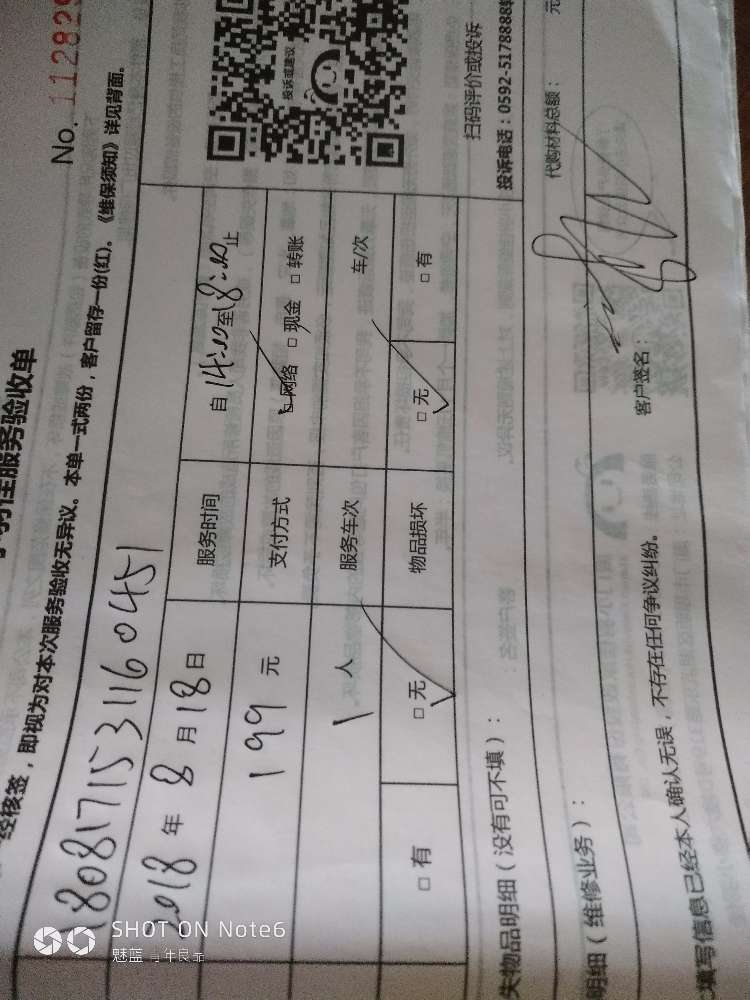 服务验收单
No. 112829
经核签，即视为对本次服务验收无异议。本单一式两份，客户留存一份(红)。《维保须知》详见背面。
180817153116 0451
2018 年 8 月 18 日 服务时间 自 14:00 至 18:00 止
199 元 支付方式 □ 网络 □ 现金 □ 转账
1 人 服务车次 车/次
□ 有 □ 无 物品损坏 □ 无 □ 有
投诉或建议
扫码评价或投诉
投诉电话：0592-5178888
失物品明细（没有可不填）：
明细（维修业务）： 代购材料总额： 元
填写信息已经本人确认无误，不存在任何争议纠纷。 客户签名：
SHOT ON Note6
魅蓝